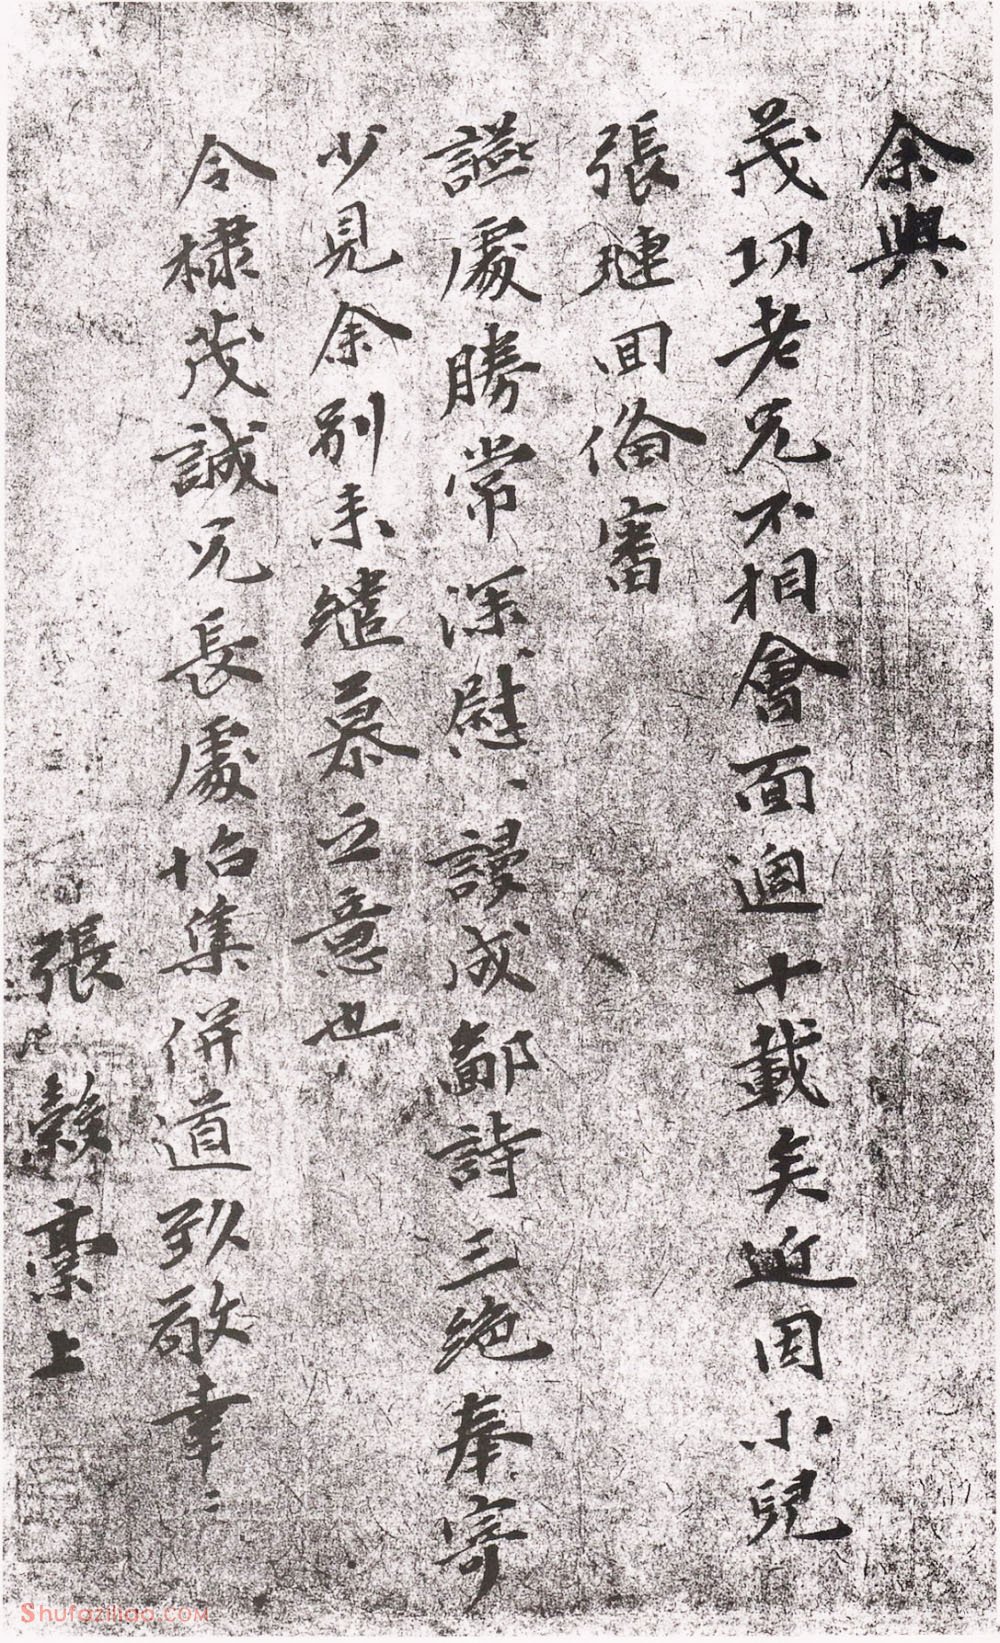 余與
茂初老兄不相會面廻十載矣近因小兒
張璉回備審
讌處勝常深慰、謾成鄙詩三絕奉寄
少見余別來繾慕之意也
令棣茂誠兄長處怡集併道致敬幸〻
張縠稾上
ShufaziliaO.COM